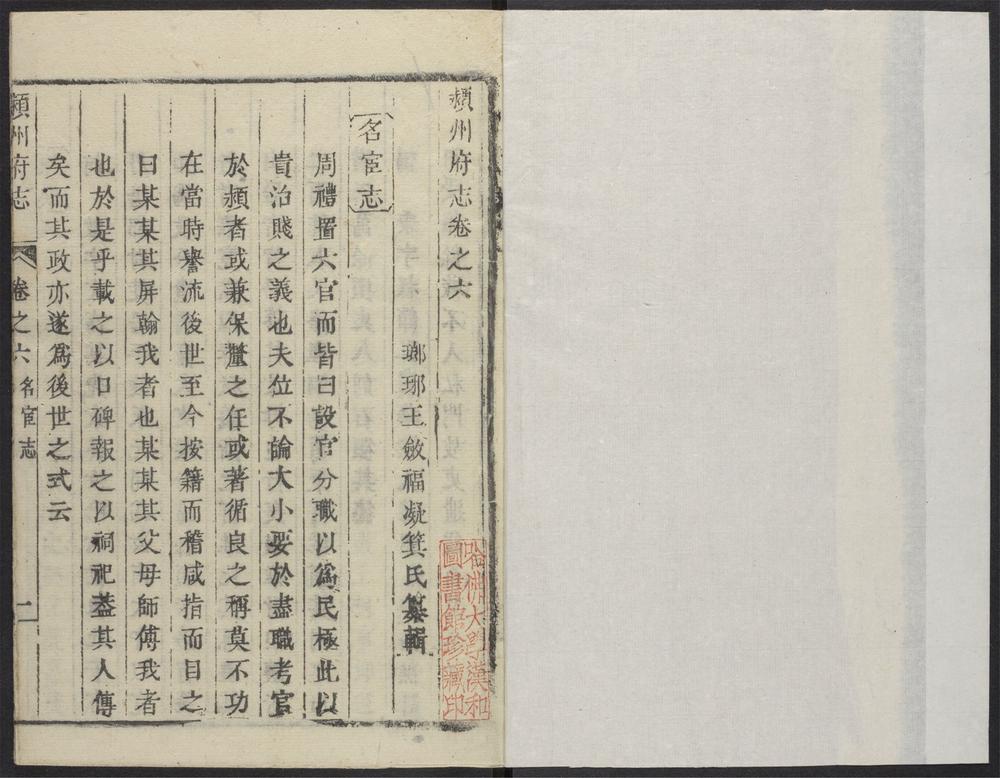 潁州府志卷之六
瑯琊王斂福凝箕氏纂輯
名宦志
周禮置六官而皆曰設官分職以爲民極此以
貴治賤之義也夫位不論大小要於盡職考官
於潁者或兼保釐之任或著循良之稱莫不功
在當時譽流後世至今按籍而稽咸指而目之
曰某某其屏翰我者也某某其父母師傅我者
也於是乎載之以口碑報之以祠祀葢其人傳
矣而其政亦遂爲後世之式云
潁州府志
卷之六 名宦志
哈佛大學漢和
圖書館珍藏印